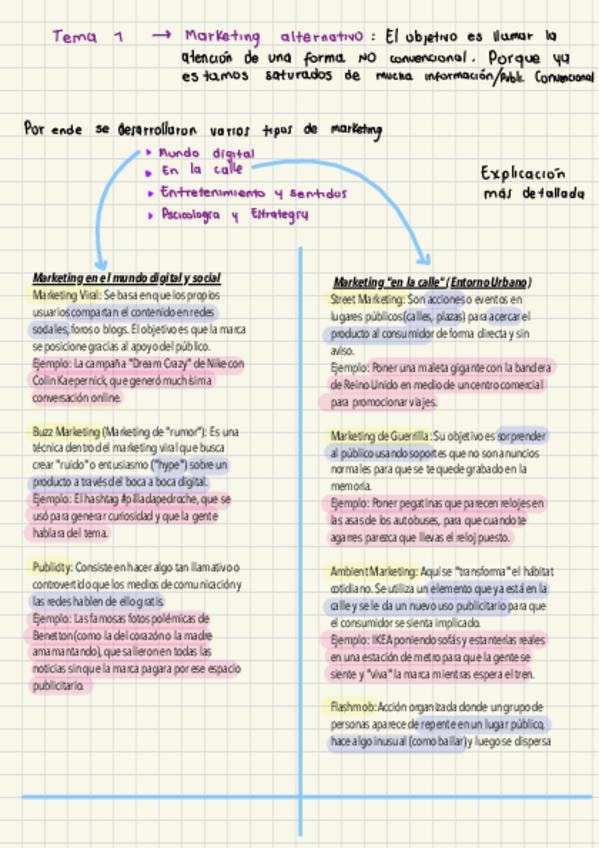 Tema 1 → Marketing alternativo: El objetivo es llamar la
atención de una forma NO convencional. Porque ya
estamos saturados de mucha información/Publi. Convencional
Por ende se desarrollaron varios tipos de marketing
Mundo digital
En la calle
Entretenimiento y sentidos
Psicología y Estrategy
Explicación
más detallada
Marketing en el mundo digital y social
Marketing Viral: Se basa en que los propios
usuarios compartan el contenido en redes
sociales, foros o blogs. El objetivo es que la marca
se posicione gracias al apoyo del público.
Ejemplo: La campaña "Dream Crazy" de Nike con
Colin Kaepernick, que generó muchísima
conversación online.
Buzz Marketing (Marketing de "rumor"): Es una
técnica dentro del marketing viral que busca
crear "ruido" o entusiasmo ("hype") sobre un
producto a través del boca a boca digital.
Ejemplo: El hashtag #pilladapedroche, que se
usó para generar curiosidad y que la gente
hablara del tema.
Publicity: Consiste en hacer algo tan llamativo o
controvertido que los medios de comunicación y
las redes hablen de ello gratis.
Ejemplo: Las famosas fotos polémicas de
Benetton (como la del corazón o la madre
amamantando), que salieron en todas las
noticias sin que la marca pagara por ese espacio
publicitario.
Marketing "en la calle" (Entorno Urbano)
Street Marketing: Son acciones o eventos en
lugares públicos (calles, plazas) para acercar el
producto al consumidor de forma directa y sin
aviso.
Ejemplo: Poner una maleta gigante con la bandera
de Reino Unido en medio de un centro comercial
para promocionar viajes.
Marketing de Guerrilla: Su objetivo es sorprender
al público usando soportes que no son anuncios
normales para que se te quede grabado en la
memoria.
Ejemplo: Poner pegatinas que parecen relojes en
las asas de los autobuses, para que cuando te
agarres parezca que llevas el reloj puesto.
Ambient Marketing: Aquí se "transforma" el hábitat
cotidiano. Se utiliza un elemento que ya está en la
calle y se le da un nuevo uso publicitario para que
el consumidor se sienta implicado.
Ejemplo: IKEA poniendo sofás y estanterías reales
en una estación de metro para que la gente se
siente y "viva" la marca mientras espera el tren.
Flashmob: Acción organizada donde un grupo de
personas aparece de repente en un lugar público,
hace algo inusual (como bailar) y luego se dispersa